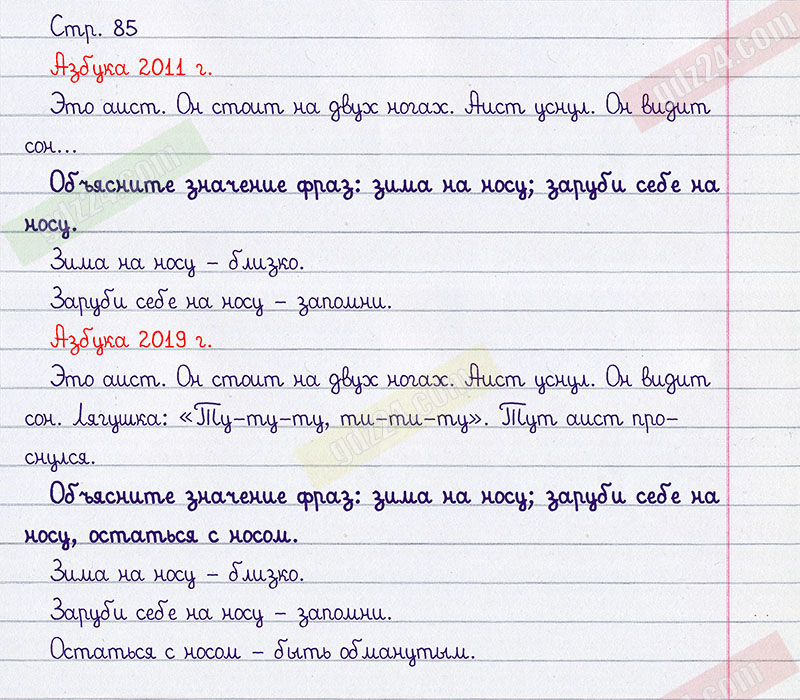 Стр. 85
Азбука 2011 г.
Это аист. Он стоит на двух ногах. Аист уснул. Он видит
сон...
Объясните значение фраз: зима на носу; заруби себе на
носу.
Зима на носу – близко.
Заруби себе на носу – запомни.
Азбука 2019 г.
Это аист. Он стоит на двух ногах. Аист уснул. Он видит
сон. Лягушка: «Ту-ту-ту, ти-ти-ту». Тут аист про-
снулся.
Объясните значение фраз: зима на носу; заруби себе на
носу, остаться с носом.
Зима на носу – близко.
Заруби себе на носу – запомни.
Остаться с носом – быть обманутым.
gdz24.com
gdz24.com
gdz24.com
gdz24.com